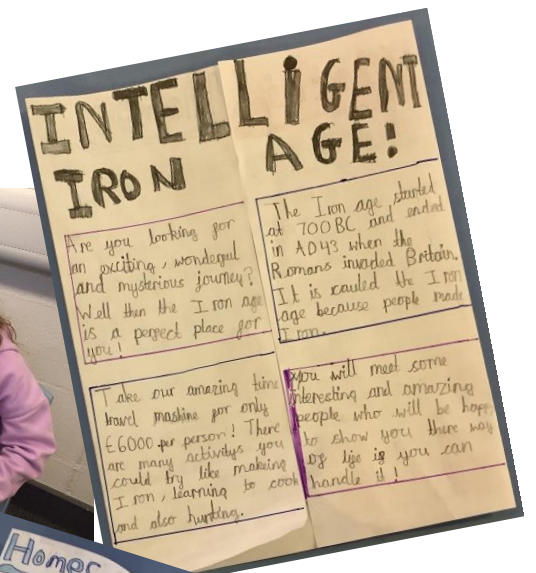 INTELLIGENT
IRON AGE!
Are you looking for
an exciting, wonderful
and mysterious journey?
Well then the Iron age
is a perfect place for
you!
The Iron age started
at 700BC and ended
in AD43 when the
Romans invaded Britain.
It is cauled the Iron
age because people made
Iron.
Take our amazing time
travel mashine for only
£6000 per person! There
are many activitys you
could try like makeing
Iron, learning to cook
and also hunting.
you will meet some
interesting and amazing
people who will be happy
to show you there way
of life if you can
handle it!
Homes